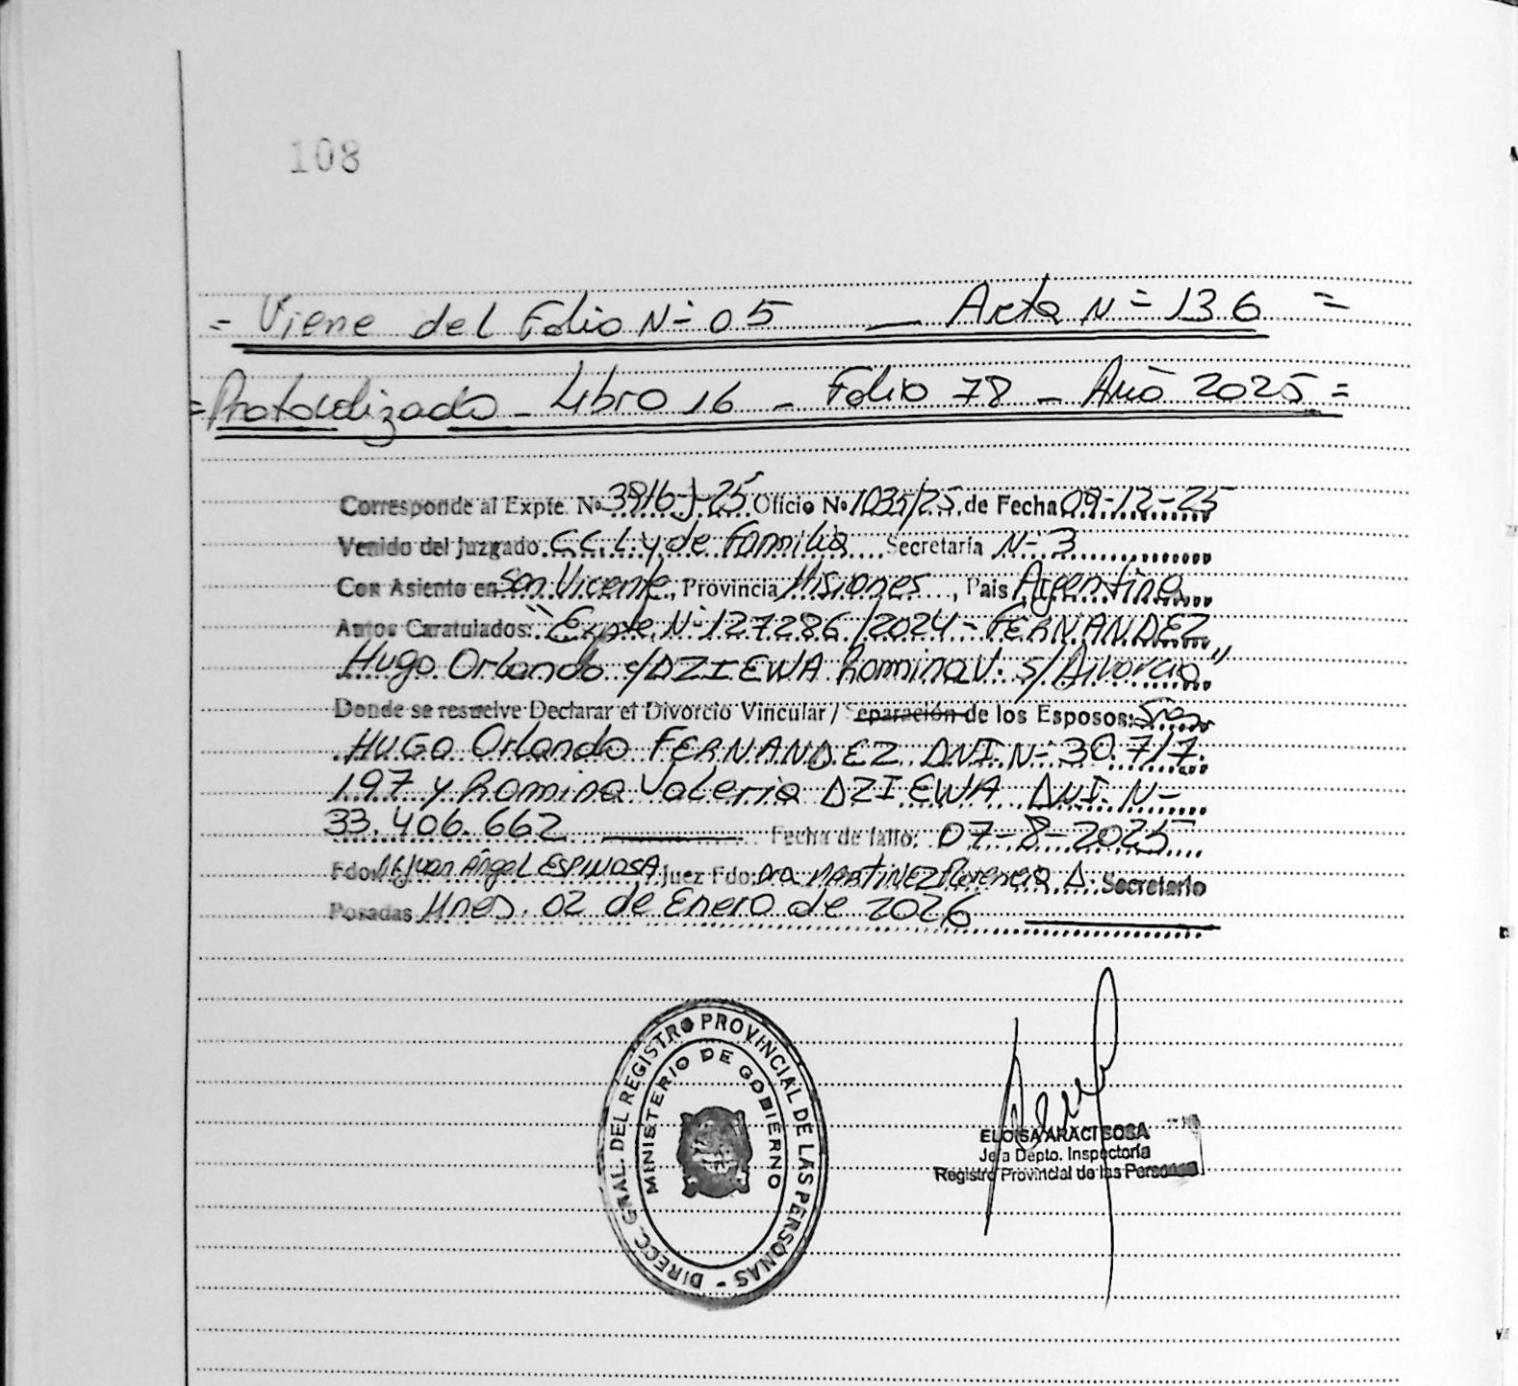 108
= Viene del Folio Nº 05 — Acta Nº 136 =
= Protocolizado - Libro 16 - Folio 78 - Año 2025 =
Corresponde al Expte. Nº 3916-J-25 Oficio Nº 1035/25 de Fecha 09-12-25
Venido del Juzgado C.C.L. y de Familia Secretaría Nº 3
Con Asiento en San Vicente, Provincia Misiones, País Argentina
Autos Caratulados: "Expte. Nº 127286/2024 - FERNANDEZ
Hugo Orlando c/ DZIEWA Romina V. s/ Divorcio"
Donde se resuelve Declarar el Divorcio Vincular / Separación de los Esposos: Sres.
HUGO Orlando FERNANDEZ DNI. Nº 30.717.
197 y Romina Valeria DZIEWA DNI. Nº
33.406.662 Fecha de fallo: 07-8-2025
Fdo: Juan Ángel ESPINOSA Juez Fdo: Dra MARTINEZ Florencia A. Secretario
Posadas Mnes. 02 de Enero de 2026
DIRECC. GRAL. DEL REGISTRO PROVINCIAL DE LAS PERSONAS -
MINISTERIO DE GOBIERNO
ELOISA ARACI SOSA
Jefa Depto. Inspectoría
Registro Provincial de las Personas